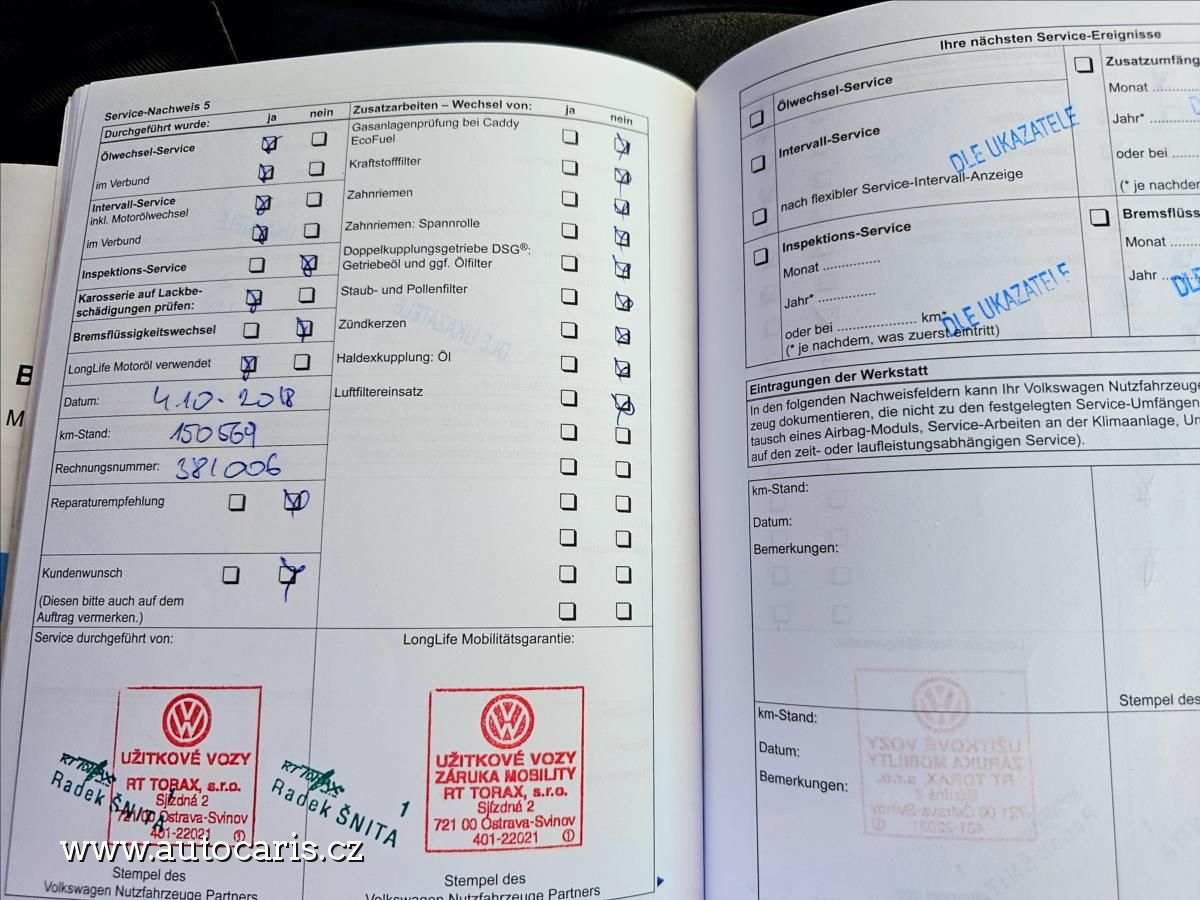 Service-Nachweis 5
Durchgeführt wurde: ja nein
Ölwechsel-Service
im Verbund
Intervall-Service
inkl. Motorölwechsel
im Verbund
Inspektions-Service
Karosserie auf Lackbe-
schädigungen prüfen:
Bremsflüssigkeitswechsel
LongLife Motoröl verwendet
Datum: 4.10-2018
km-Stand: 150569
Rechnungsnummer: 381006
Reparaturempfehlung
Kundenwunsch
(Diesen bitte auch auf dem
Auftrag vermerken.)
Service durchgeführt von:
UŽITKOVÉ VOZY
RT TORAX, s.r.o.
Sjízdná 2
721 00 Ostrava-Svinov
401-22021 1
RT TORAX
Radek ŠNITA
1
Stempel des
Volkswagen Nutzfahrzeuge Partners
Zusatzarbeiten – Wechsel von: ja nein
Gasanlagenprüfung bei Caddy
EcoFuel
Kraftstofffilter
Zahnriemen
Zahnriemen: Spannrolle
Doppelkupplungsgetriebe DSG®:
Getriebeöl und ggf. Ölfilter
Staub- und Pollenfilter
Zündkerzen
Haldexkupplung: Öl
Luftfiltereinsatz
LongLife Mobilitätsgarantie:
UŽITKOVÉ VOZY
ZÁRUKA MOBILITY
RT TORAX, s.r.o.
Sjízdná 2
721 00 Ostrava-Svinov
401-22021 1
RT TORAX
Radek ŠNITA
1
Stempel des
Volkswagen Nutzfahrzeuge Partners
Ihre nächsten Service-Ereignisse
Ölwechsel-Service
Intervall-Service
DLE UKAZATELE
nach flexibler Service-Intervall-Anzeige
Inspektions-Service
Monat ...............
Jahr* ...............
DLE UKAZATELE
oder bei ..................... km*
(* je nachdem, was zuerst eintritt)
Zusatzumfäng
Monat
Jahr*
oder bei
(* je nachdem
Bremsflüss
Monat
Jahr
DL
Eintragungen der Werkstatt
In den folgenden Nachweisfeldern kann Ihr Volkswagen Nutzfahrzeuge
zeug dokumentieren, die nicht zu den festgelegten Service-Umfängen
tausch eines Airbag-Moduls, Service-Arbeiten an der Klimaanlage, Um
auf den zeit- oder laufleistungsabhängigen Service).
km-Stand:
Datum:
Bemerkungen:
Stempel des
km-Stand:
Datum:
Bemerkungen:
B
M
www.autocaris.cz